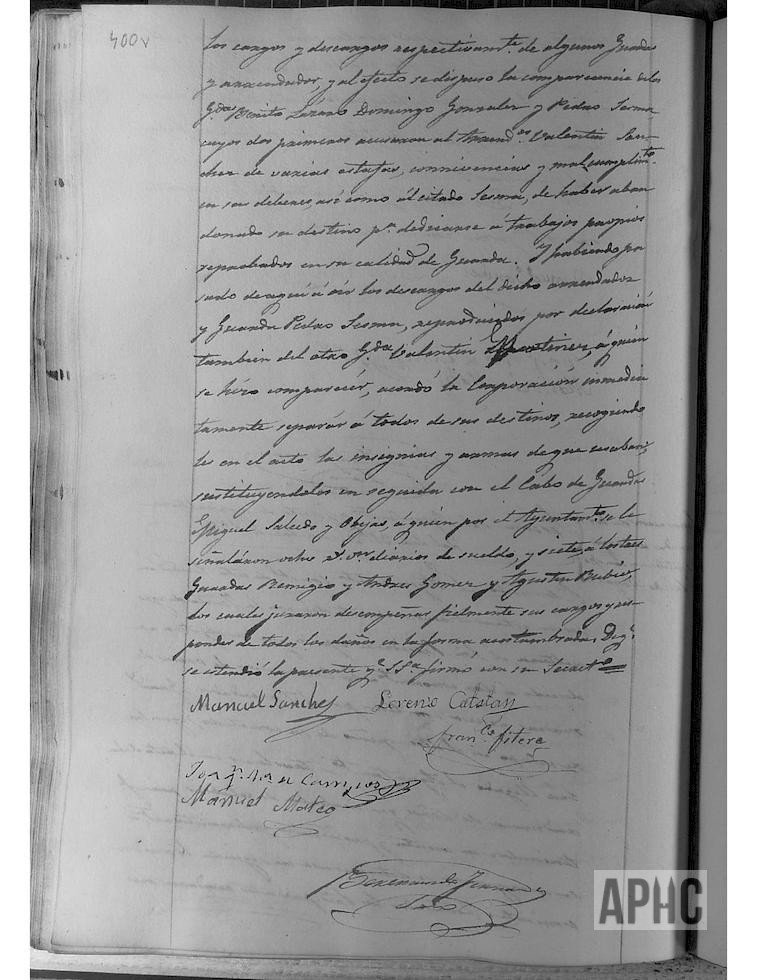 400v
los cargos y descargos respectivamte. de algunos Guardas
y arrendador, y al efecto se dispuso la comparecencia de los
Gdas. Benito Lázaro Domingo Gonzalez y Pedro Sesma
cuyos dos primeros acusaron al Arrendor. Valentin San-
chez de varias estafas, connivencias y mal cumplimto.
en sus deberes, asi como al citado Sesma, de haber aban
donado su destino pa. dedicarse á trabajos propios
reprobados en su calidad de Guarda. Y habiendo pa
sado de aqui á oir los descargos del dicho arrendador
y Guarda Pedro Sesma, reproducidos por declaración
tambien del otro Gda. Valentin Martinez, á quien
se hizo comparecér, acordó la Corporación inmedia
tamente separár á todos de sus destinos, recogiendo
les en el acto las insignias y armas de que usaban,
sustituyendolos en seguida con el Cabo de Guardas
Miguel Salcedo y Obejas, á quien por el Ayuntamto. se le
señaláron ocho r. von. diarios de sueldo, y siete, á los tres
Guardas Remigio y Andres Gomez y Agustin Rubio,
los cuales juraron desempeñar fielmente sus cargos y res-
ponder de todos los daños en la forma acostumbrada. De q.
se estendió la presente q. SSa. firmó con su Secreto.
Manuel Sanchez Lorenzo Catalan
Franco. Fitera
Joaqn. Ma. de Campos
Manuel Mateo
Fernandez
Soto
APHC